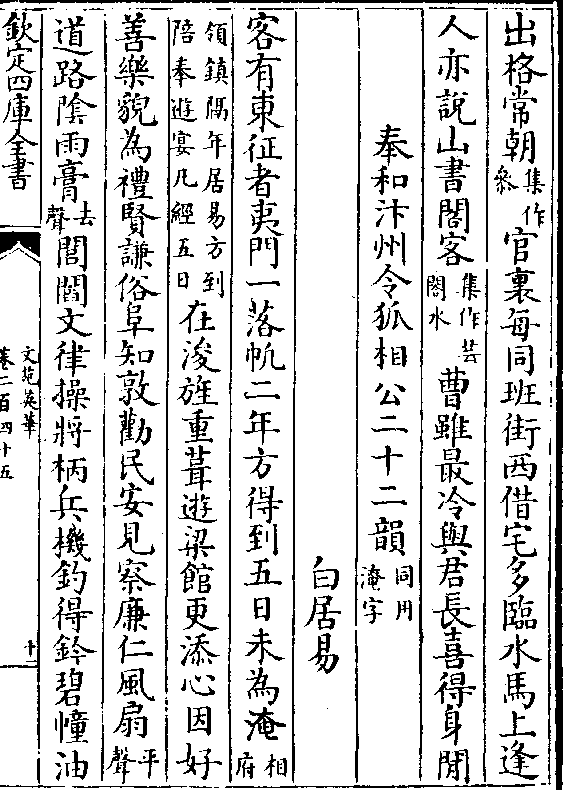 出格常朝集作叅官裏每同班街西借宅多臨水馬上逢
人亦說山書閣客集作芸閣水曹雖最冷與君長喜得身閒
奉和汴州令狐相公二十二韻同用淹字
白居易
客有東征者夷門一落帆二年方得到五日未為淹相府
領鎮隅年居易方到陪奉遊宴凡經五日在浚旌重葺遊梁館更添心因好
善樂貌為禮賢謙俗阜知敦勸民安見察廉仁風扇平聲
道路陰雨膏去聲閭閻文律操將柄兵機釣得鈐碧幢油
欽定四庫全書
文苑英華
卷二百四十五
十一